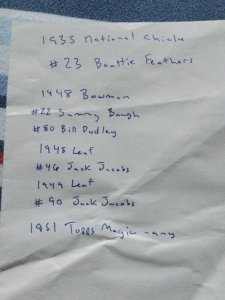 1935 National Chicle
#23 Beattie Feathers
1948 Bowman
#22 Sammy Baugh
#80 Bill Dudley
1948 Leaf
#46 Jack Jacobs
1949 Leaf
#90 Jack Jacobs
1951 Topps Magic any